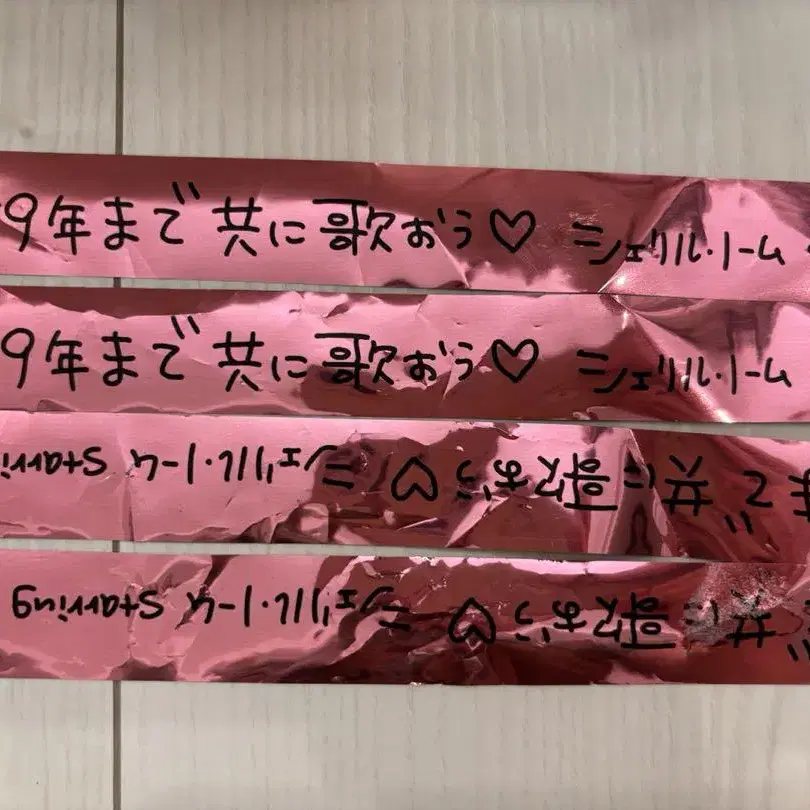 9年まで共に歌おう♡ シェリル・ノーム
9年まで共に歌おう♡ シェリル・ノーム
まで共に歌おう♡ シェリル・ノーム Starri
共に歌おう♡ シェリル・ノーム Starring